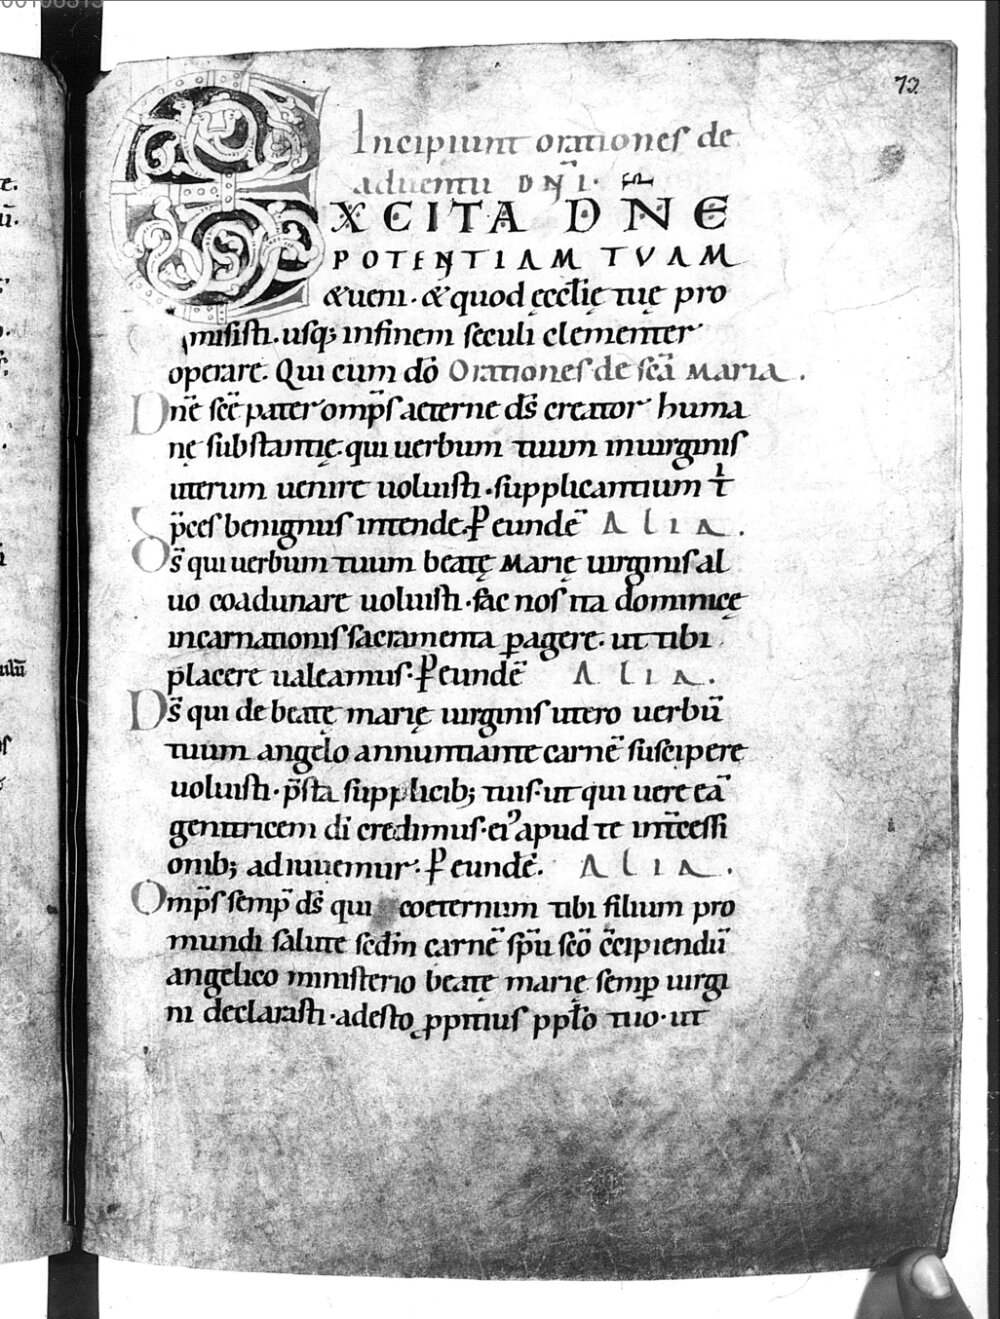 72
Incipiunt orationes de
aduentu DN̄I.
EXCITA DNE
POTENTIAM TVAM
&ueni · & quod ęccl̄ię tuę pro
misisti. usq; infinem seculi clementer
operare. Qui cum dō Orationes de sc̄a MARIA.
Dn̄e sc̄e pater omp̄s aeterne ds̄ creator huma
nę substantię. qui uerbum tuum inuirginis
uterum uenire uoluisti · supplicantium t̄
p̄ces benignus intende. ꝑ eundē ALIA.
Ds̄ qui uerbum tuum beatę Marię uirginis al
uo coadunare uoluisti · fac nos ita dominicę
incarnationis sacramenta ꝑagere · ut tibi
placere ualeamus · ꝑ eundē ALIA.
Ds̄ qui de beatę marię uirginis utero uerbū
tuum angelo annuntiante carnē suscipere
uoluisti · p̄sta supplicib; tuis · ut qui uere eā
genitricem di credimus · ei' apud te int̄cessi
onib; adiuuemur · ꝑ eundē. ALIA.
Omp̄s semp̄ ds̄ qui coeternum tibi filium pro
mundi salute sc̄dm carnē sp̄u sc̄o c̄cipiendū
angelico ministerio beatę marię semꝑ uirgi
ni declarasti · adesto ꝓpitius ppl̄o tuo · ut